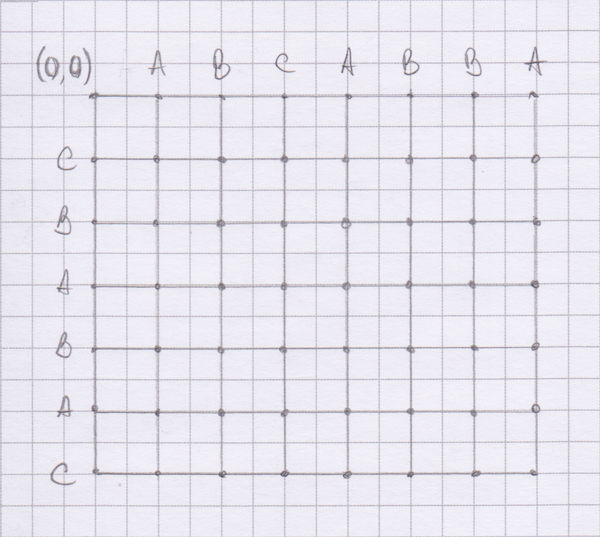 (0,0) A B C A B B A
C
B
A
B
A
C